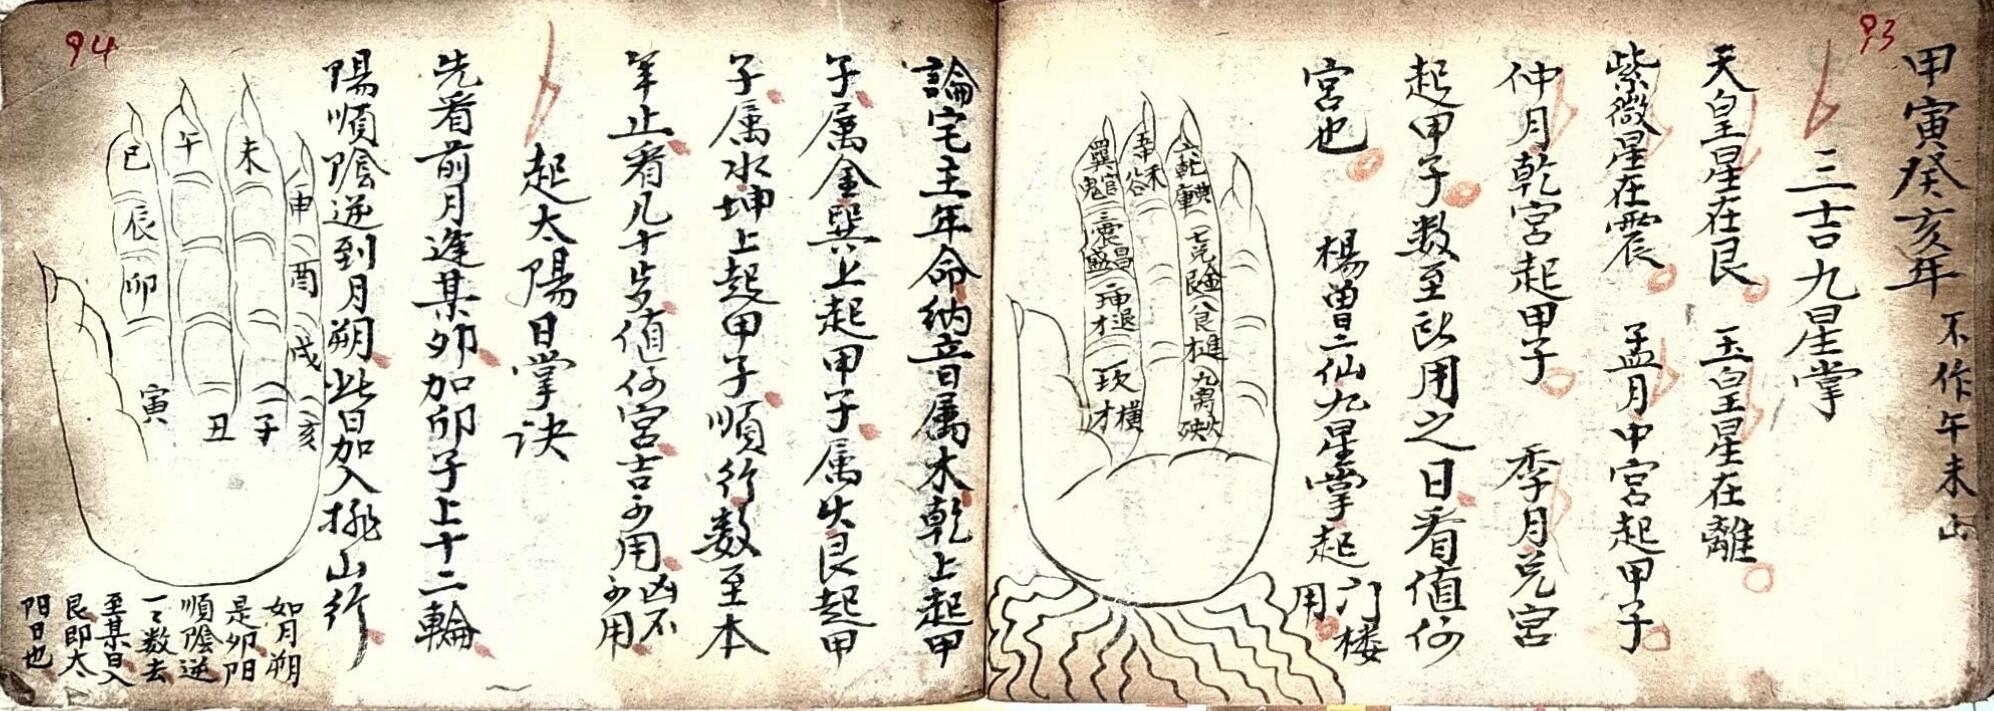 93
甲寅癸亥年 不作午未山
三吉九星掌
天皇星在艮 玉皇星在離
紫微星在震 孟月中宮起甲子
仲月乾宮起甲子 季月兑宮
起甲子数至所用之日看值何
宮也 楊曽二仙九星掌起门楼用
六乾
巽官鬼
三震昌盛
二坤退才
一坎橫才
七兑
八艮進才
九离火殃
94
論宅主年命納音日属木乾上起甲
子属金巽上起甲子属火艮起甲
子属水坤上起甲子順行数至本
年止看几十岁值何宮吉可用凶不可用
起太陽日掌诀
先看前月逢某卯加卯子上十二輪
陽順陰逆到月朔此日加入挑山行
巳
午
未
申
辰
酉
卯
戌
寅
丑
子
亥
如月朔
是卯阳
順陰逆
一二数去
至某日入
艮即太
阳日也